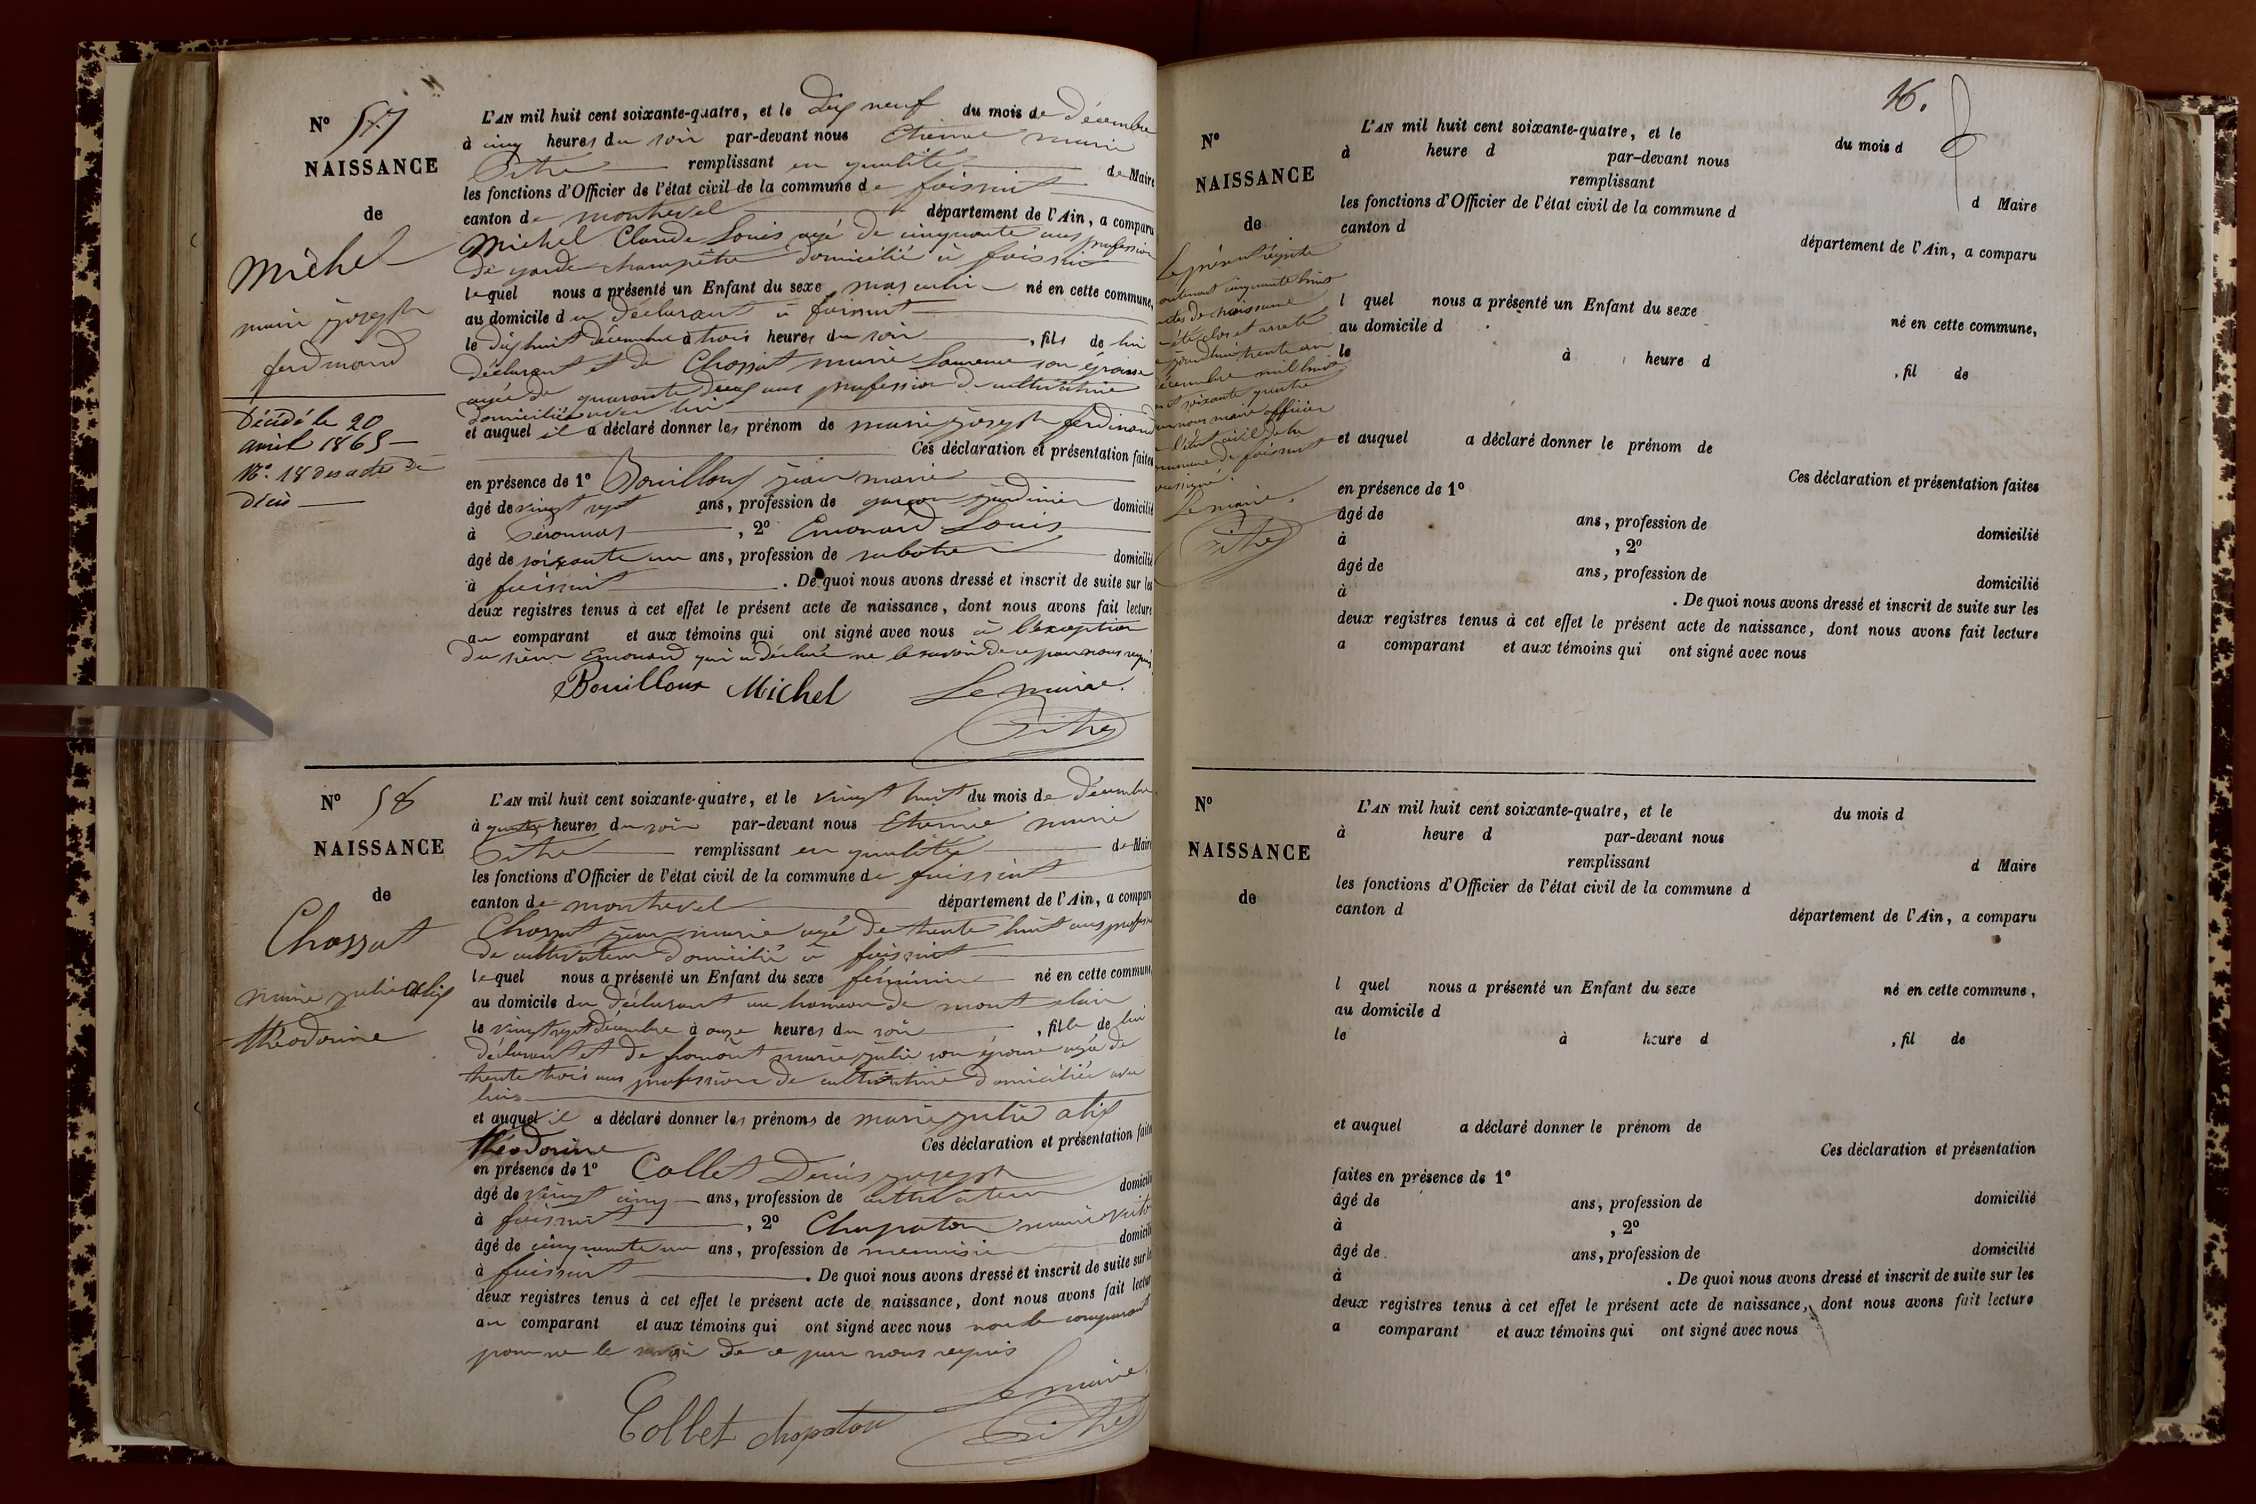 N° 57
NAISSANCE
de
Michel
marie joseph
ferdinand
Décédé le 20
avril 1865
N°. 18 des actes de
décès
L'AN mil huit cent soixante-quatre, et le dix neuf du mois de décembre
à cinq heures du soir par-devant nous Etienne marie
Pithe remplissant en qualité de Maire
les fonctions d'Officier de l'état civil de la commune de foissiat
canton de montrevel département de l'Ain, a comparu
Michel Claude Louis agé de cinquante ans profession
de garde champêtre domicilié à foissiat
lequel nous a présenté un Enfant du sexe masculin né en cette commune,
au domicile du déclarant à foissiat
le dix huit décembre à trois heures du soir , fils de lui
déclarant et de Chossat marie Laurence son épouse
agée de quarante deux ans profession de cultivatrice
domiciliée avec lui
et auquel il a déclaré donner les prénom de marie joseph ferdinand
Ces déclaration et présentation faites
en présence de 1° Bouilloux jean marie
âgé de vingt sept ans, profession de garçon jardinier domicilié
à Péronnas , 2° Emonard Louis
âgé de soixante un ans, profession de sabotier domicilié
à foissiat . De quoi nous avons dressé et inscrit de suite sur les
deux registres tenus à cet effet le présent acte de naissance, dont nous avons fait lecture
au comparant et aux témoins qui ont signé avec nous à l'exception
du sieur Emonard qui a déclaré ne le savoir de ce par nous requis
Bouilloux Michel Le maire.
Pithe
N° 58
NAISSANCE
de
Chossat
marie julie alix
théodorine
L'AN mil huit cent soixante-quatre, et le vingt huit du mois de décembre
à quatre heures du soir par-devant nous Etienne marie
Pithe remplissant en qualité de Maire
les fonctions d'Officier de l'état civil de la commune de foissiat
canton de montrevel département de l'Ain, a comparu
Chossat jean marie agé de trente huit ans profession
de cultivateur domicilié à foissiat
lequel nous a présenté un Enfant du sexe féminin né en cette commune
au domicile du déclarant au hameau de mont
le vingt sept décembre à onze heures du soir , fille de lui
déclarant et de marie julie son épouse agée de
trente trois ans profession de cultivatrice domiciliée avec
lui
et auquel il a déclaré donner les prénoms de marie julie alix
théodorine Ces déclaration et présentation faites
en présence de 1° Collet Denis joseph
âgé de vingt cinq ans, profession de cultivateur domicilié
à foissiat , 2° Chapaton marie
âgé de cinquante un ans, profession de menuisier domicilié
à foissiat . De quoi nous avons dressé et inscrit de suite sur les
deux registres tenus à cet effet le présent acte de naissance, dont nous avons fait lecture
au comparant et aux témoins qui ont signé avec nous non le comparant
pour ne le savoir de ce par nous requis
Collet chapaton Le maire.
Pithe
16.
N°
NAISSANCE
de
Le présent registre
contenant cinquante huit
actes de naissance
a été clos et arrêté
aujourd'hui trente un
décembre mil huit
cent soixante quatre
par nous maire officier
de l'état civil de la
commune de foissiat
soussigné.
Le maire.
Pithe
L'AN mil huit cent soixante-quatre, et le du mois d
à heure d par-devant nous
remplissant d Maire
les fonctions d'Officier de l'état civil de la commune d
canton d département de l'Ain, a comparu
l quel nous a présenté un Enfant du sexe né en cette commune,
au domicile d
le à heure d , fil de
et auquel a déclaré donner le prénom de
Ces déclaration et présentation faites
en présence de 1°
âgé de ans, profession de domicilié
à , 2°
âgé de ans, profession de domicilié
à . De quoi nous avons dressé et inscrit de suite sur les
deux registres tenus à cet effet le présent acte de naissance, dont nous avons fait lecture
a comparant et aux témoins qui ont signé avec nous
N°
NAISSANCE
de
L'AN mil huit cent soixante-quatre, et le du mois d
à heure d par-devant nous
remplissant d Maire
les fonctions d'Officier de l'état civil de la commune d
canton d département de l'Ain, a comparu
l quel nous a présenté un Enfant du sexe né en cette commune,
au domicile d
le à heure d , fil de
et auquel a déclaré donner le prénom de
Ces déclaration et présentation
faites en présence de 1°
âgé de ans, profession de domicilié
à , 2°
âgé de ans, profession de domicilié
à . De quoi nous avons dressé et inscrit de suite sur les
deux registres tenus à cet effet le présent acte de naissance, dont nous avons fait lecture
a comparant et aux témoins qui ont signé avec nous